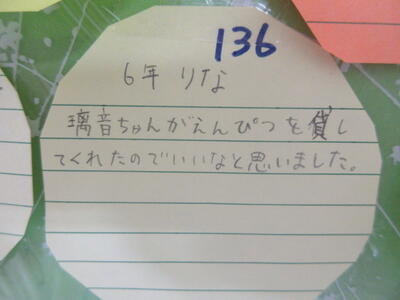 136
6年 りな
璃音ちゃんがえんぴつを貸し
てくれたのでいいなと思いました。